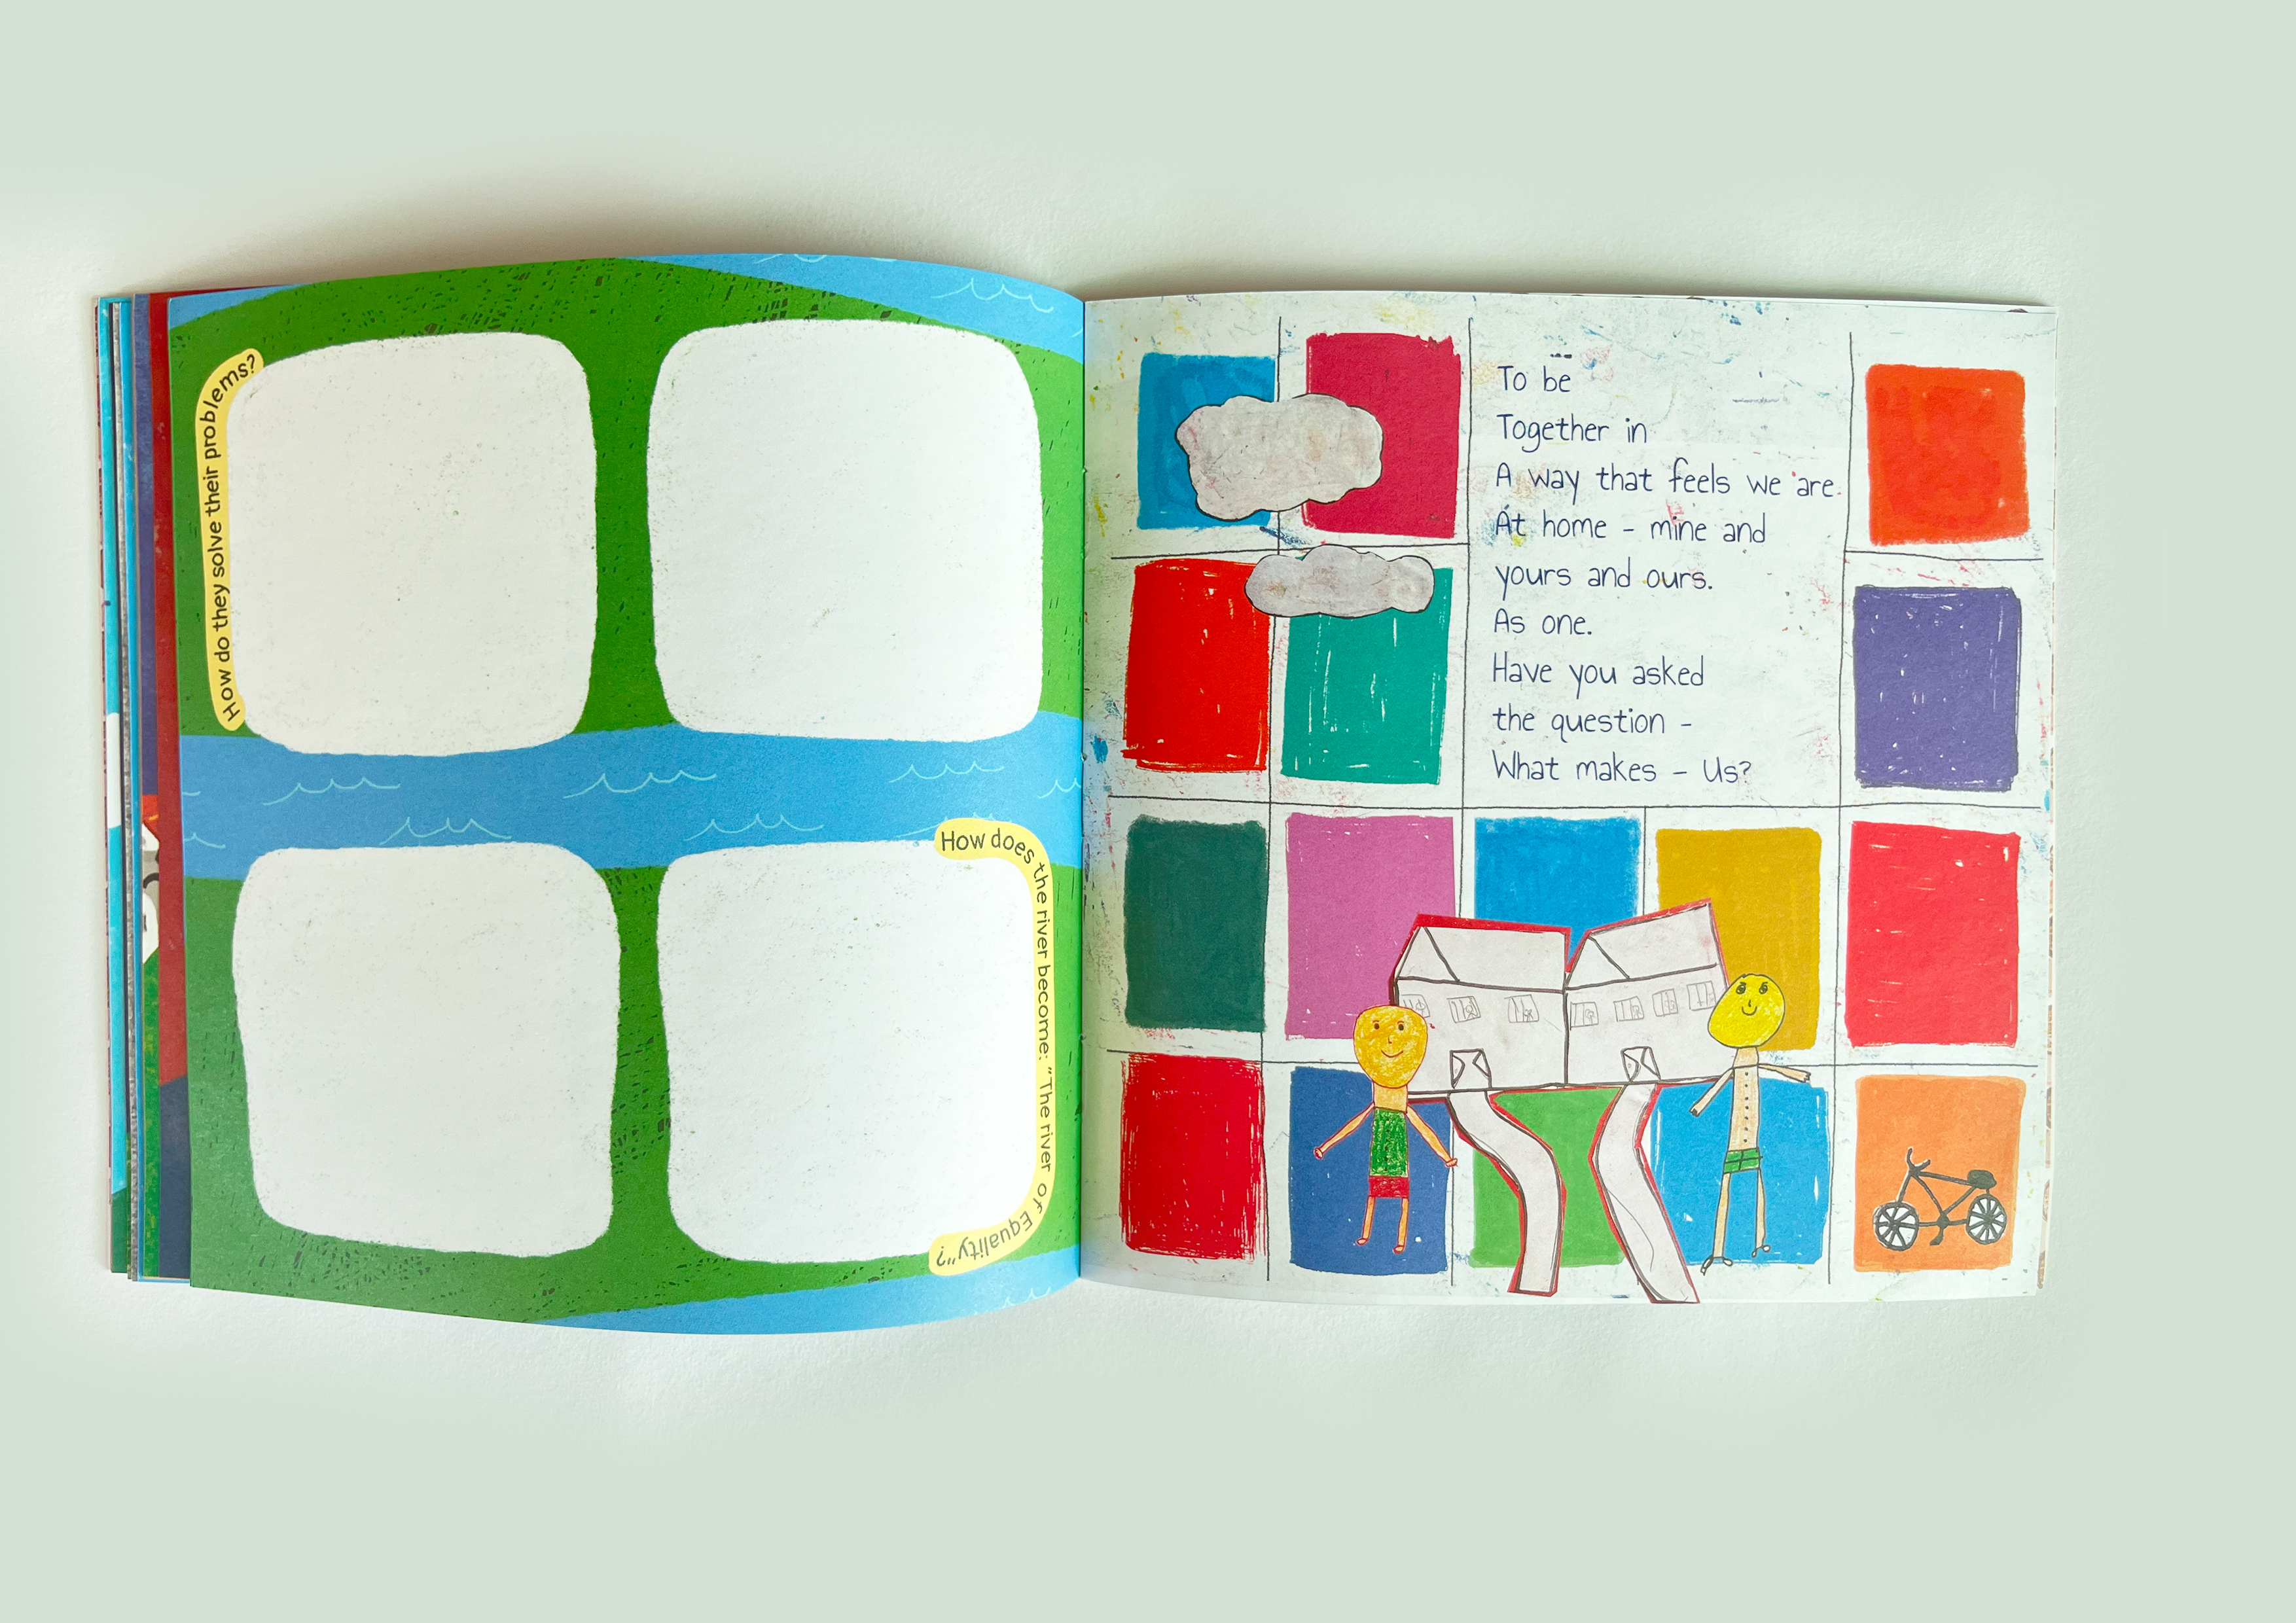 How do they solve their problems?
How does the river become: "The river of Equality"?
To be
Together in
A way that feels we are
At home - mine and
yours and ours.
As one.
Have you asked
the question -
What makes - Us?